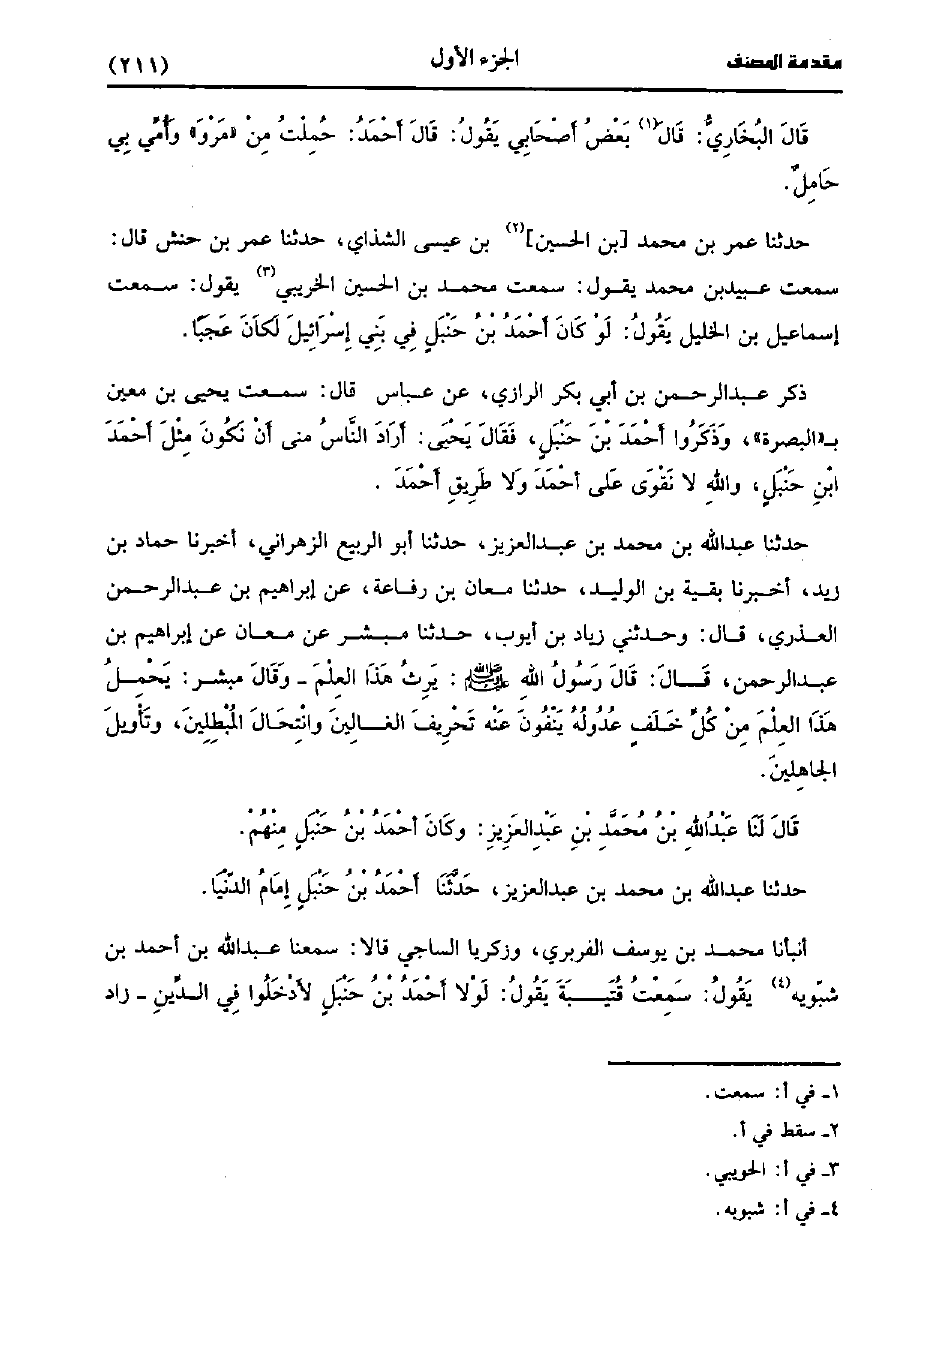 مقدمة المصنف الجزء الأول (٢١١)
قَالَ البُخَارِيُّ: قَالَ(١) بَعْضُ أَصْحَابِي يَقُولُ: قَالَ أَحْمَدُ: حُمِلْتُ مِنْ «مَرْوَ» وَأُمِّي بِي
حَامِلٌ.
حدثنا عمر بن محمد [بن الحسين](٢) بن عيسى الشذاي، حدثنا عمر بن حنش قال:
سمعت عبيدبن محمد يقول: سمعت محمد بن الحسين الخريبي(٣) يقول: سمعت
إسماعيل بن الخليل يَقُولُ: لَوْ كَانَ أَحْمَدُ بْنُ حَنْبَلٍ فِي بَنِي إِسْرَائِيلَ لَكَانَ عَجَبًا.
ذكر عبدالرحمن بن أبي بكر الرازي، عن عباس قال: سمعت يحيى بن معين
بـ«البصرة»، وَذَكَرُوا أَحْمَدَ بْنَ حَنْبَلٍ، فَقَالَ يَحْيَى: أَرَادَ النَّاسُ منى أَنْ نَكُونَ مِثْلَ أَحْمَدَ
ابْنِ حَنْبَلٍ، واللهِ لا نَقْوَى عَلى أَحمَدَ وَلَا طَرِيقِ أَحْمَدَ .
حدثنا عبدالله بن محمد بن عبدالعزيز، حدثنا أبو الربيع الزهراني، أخبرنا حماد بن
زيد، أخبرنا بقية بن الوليد، حدثنا معان بن رفاعة، عن إبراهيم بن عبدالرحمن
العذري، قال: وحدثني زياد بن أيوب، حدثنا مبشر عن معان عن إبراهيم بن
عبدالرحمن، قال: قَالَ رَسُولُ اللهِ ﷺ : يَرِثُ هَذَا العِلْمَ - وَقَالَ مبشر: يَحْمِلُ
هَذَا العِلْمَ مِنْ كُلِّ خَلَفٍ عُدُولُهُ يَنْفُونَ عَنْه تَحْرِيفَ الغَالِينَ وانْتِحَالَ المُبْطِلِينَ، وتَأْوِيلَ
الجاهلينَ.
قَالَ لَنَا عَبْدُاللهِ بْنُ مُحَمَّدِ بْنِ عَبْدِالعَزِيزِ: وكَانَ أَحْمَدُ بْنُ حَنْبَلٍ مِنْهُمْ.
حدثنا عبدالله بن محمد بن عبدالعزيز، حَدَّثَنَا أَحْمَدُ بْنُ حَنْبَلٍ إِمَامُ الدُّنْيَا.
أنبأنا محمد بن يوسف الفربري، وزكريا الساجي قالا: سمعنا عبدالله بن أحمد بن
شبّويه(٤) يَقُولُ: سَمِعْتُ قُتَيبَةَ يَقُولُ: لَوْلَا أَحْمَدُ بْنُ حَنْبَلٍ لأَدْخَلُوا فِي الدِّينِ - زاد
١- في أ: سمعت.
٢- سقط في أ.
٣- في أ: الحويبي.
٤- في أ: شبويه.